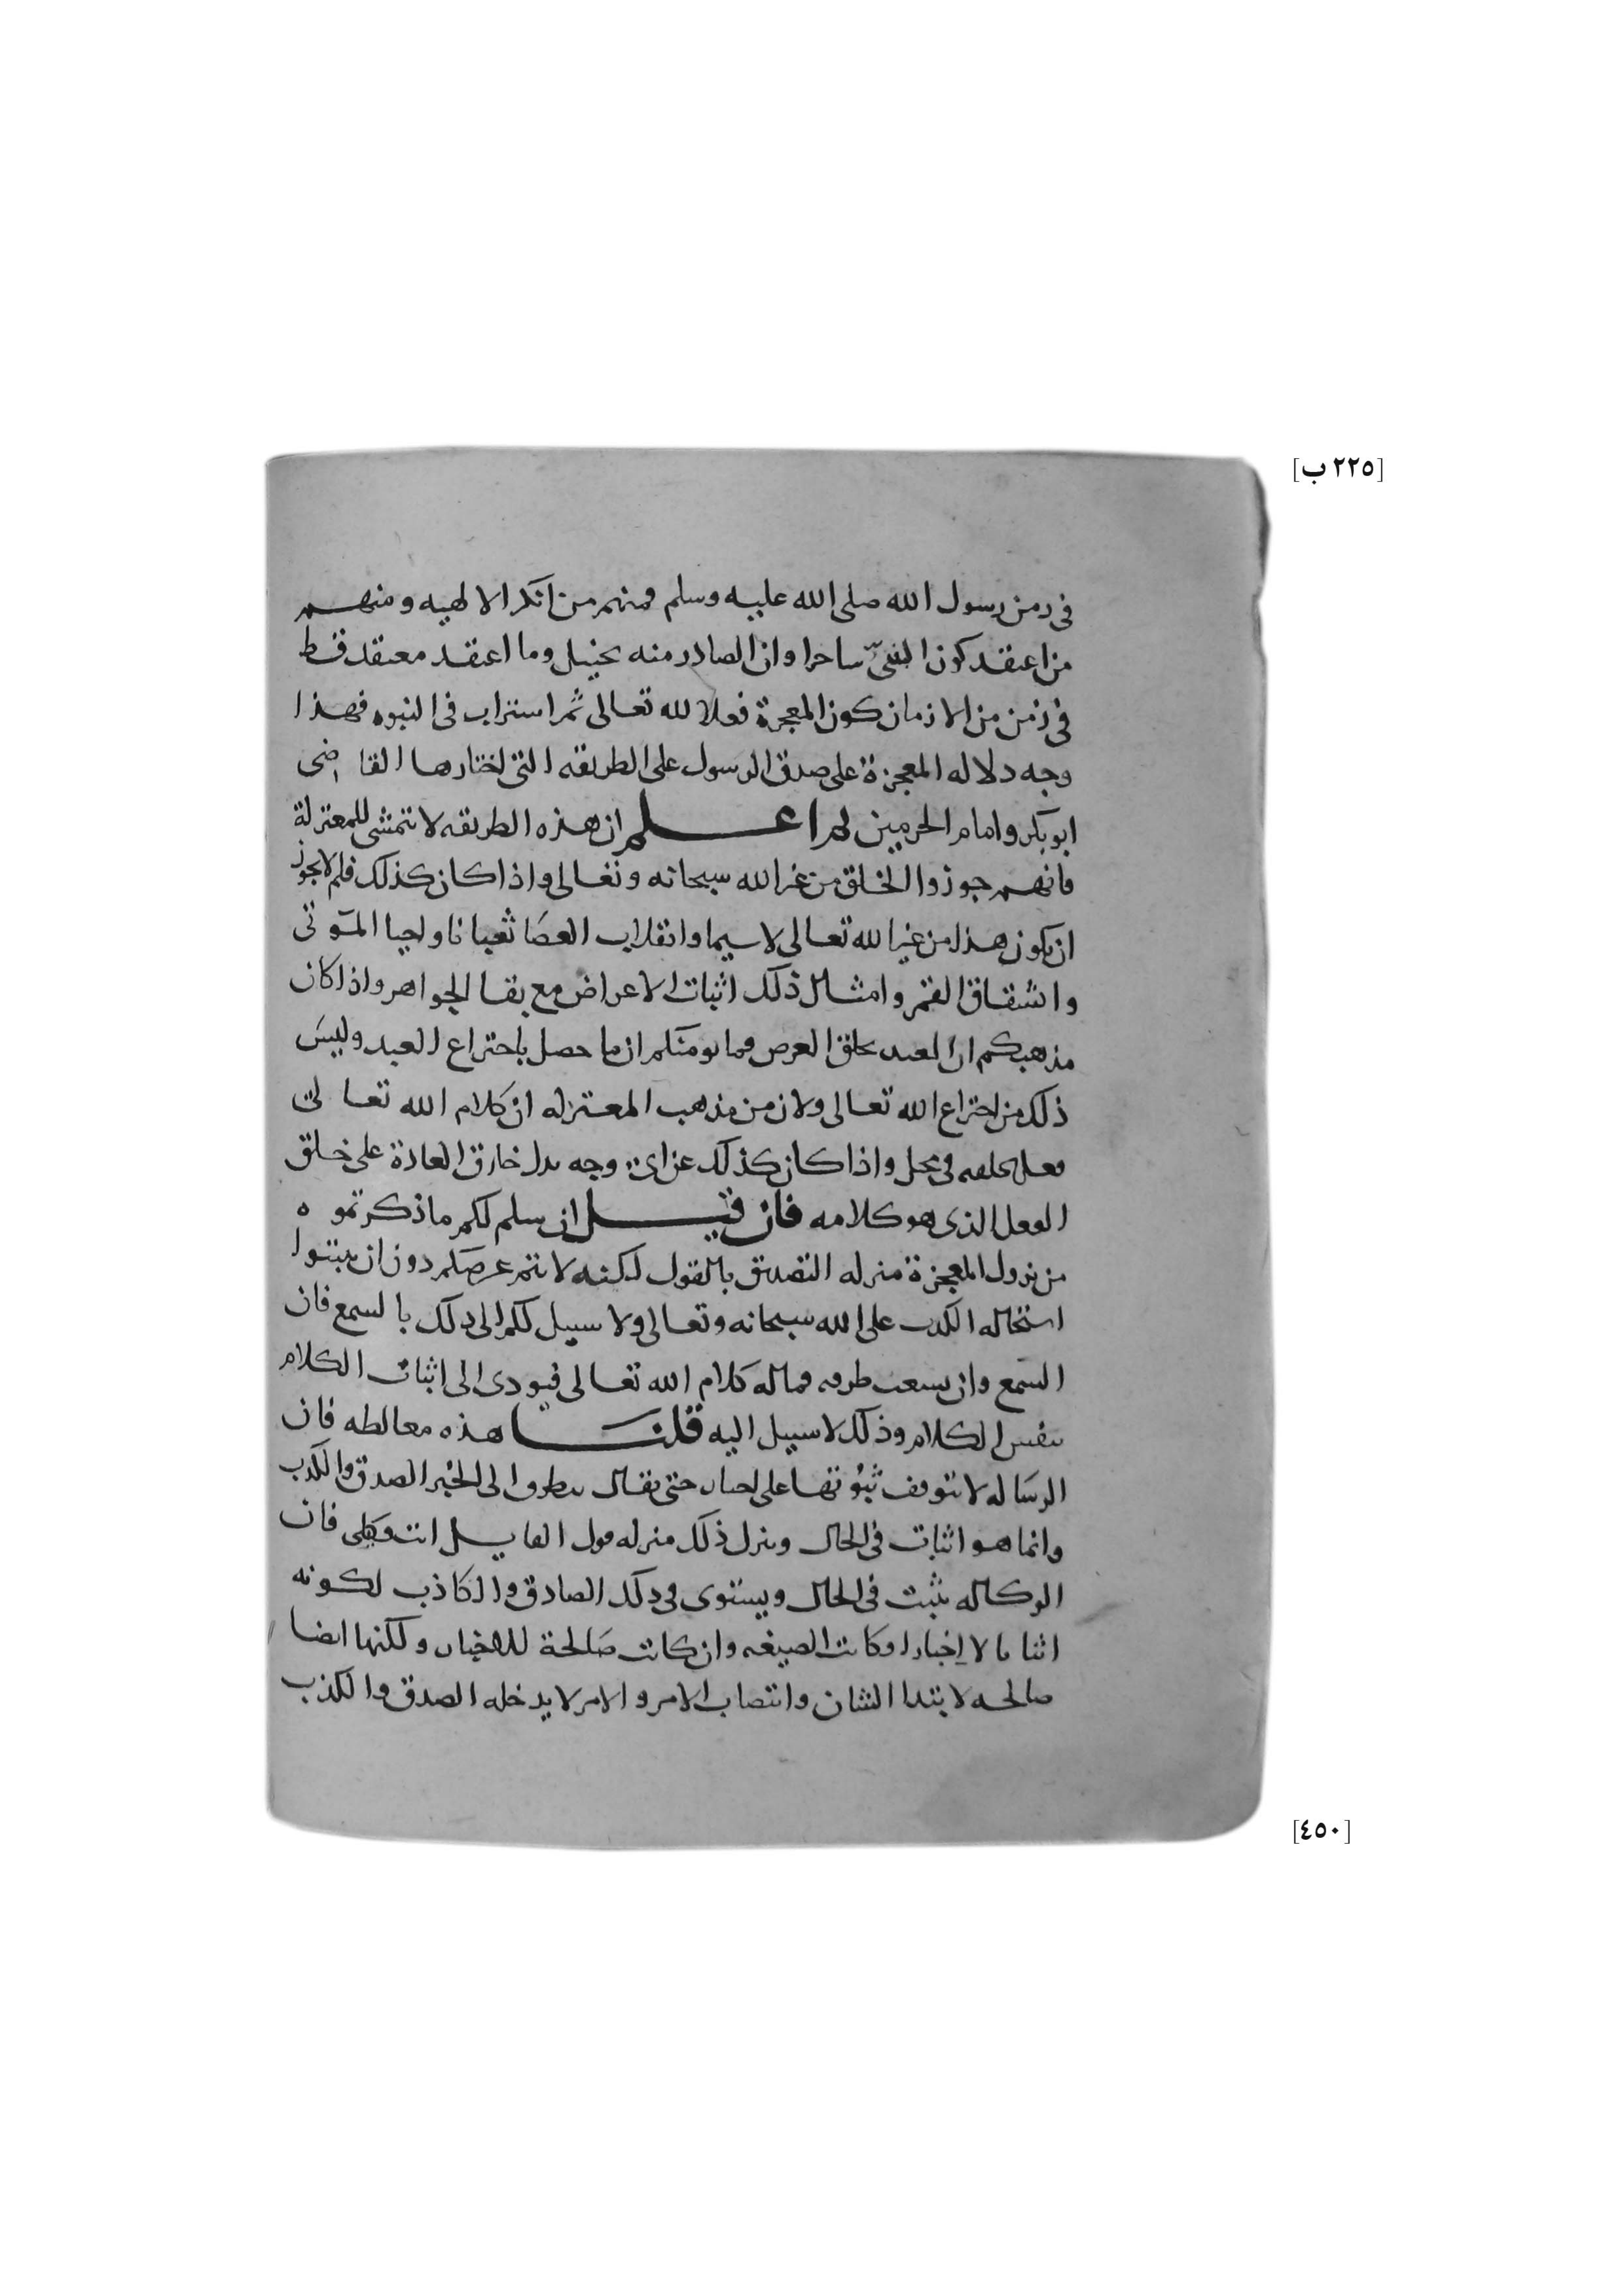 [٢٢٥ ب]
في زمن رسول الله صلى الله عليه وسلم فمنهم من انكر الالهيه ومنهم
من اعتقد كون النبي ساحرا وان الصادر منه تخييل وما اعتقد معتقد قط
في زمن من الازمان كون المعجزة فعلا لله تعالى ثم استراب في النبوه فهذا
وجه دلاله المعجزة على صدق الرسول على الطريقه التي اختارها القاضي
ابو بكر وامام الحرمين ثم اعلم ان هذه الطريقه لا تتمشى للمعتزلة
فانهم جوزوا الخلق من غير الله سبحانه وتعالى واذا كان كذلك فلم لا يجوز
ان يكون هذا من غير الله تعالى لا سيما وانقلاب العصا ثعبانا واحيا الموتى
وانشقاق القمر وامثال ذلك اثبات الاعراض مع بقا الجواهر واذا كان
مذهبكم ان العبد يخلق العرض فما يومنكم ان ما حصل باختراع العبد وليس
ذلك من اختراع الله تعالى ولان من مذهب المعتزله ان كلام الله تعالى
فعل يخلقه في محل واذا كان كذلك عن اي وجه يدل خارق العادة على خلق
الفعل الذي هو كلامه فان قيل ان سلم لكم ما ذكرتموه
من نزول المعجزة منزله التصديق بالقول لكنه لا يتم غرضكم دون ان تثبتوا
استحاله الكذب على الله سبحانه وتعالى ولا سبيل لكم الى ذلك بالسمع فان
السمع وان تشعب طرقه فماله كلام الله تعالى فيودى الى اثبات الكلام
بنفس الكلام وذلك لا سبيل اليه قلنا هذه مغالطه فان
الرساله لا تتوقف ثبوتها على اخبار حتى يقال يتطرق الى الخبر الصدق والكذب
وانما هو اثبات في الحال وينزل ذلك منزله قول القايل انت وكيلي فان
الوكاله تثبت في الحال ويستوى في ذلك الصادق والكاذب لكونه
اثباتا لا اخبارا وكانت الصيغه وان كانت صالحة للاخبار ولكنها ايضا
صالحه لابتدا الشان وانتصاب الامر والامر لا يدخله الصدق والكذب
[٤٥٠]